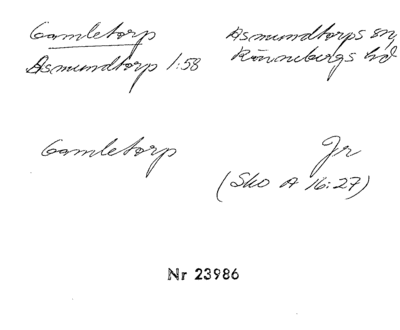 Gamletorp
Asmundtorps sn,
Asmundtorp 1:58
Rönnebergs hd
Gamletorp
Jr
(Sko A 16:27)
Nr 23986